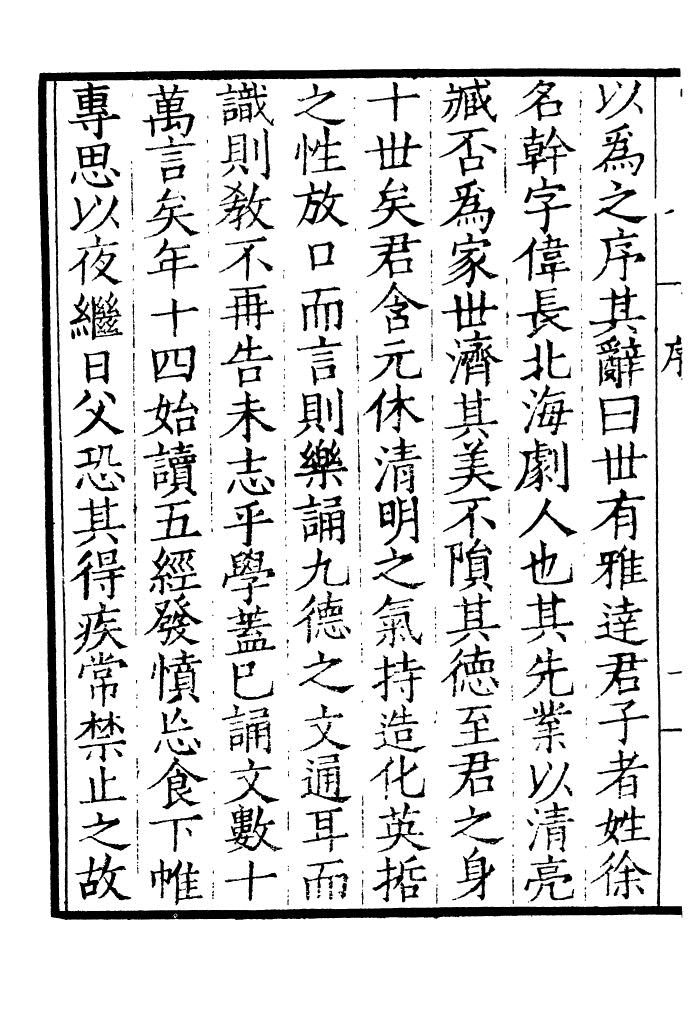 序
以爲之序其辭曰世有雅逹君子者姓徐
名幹字偉長北海劇人也其先業以清亮
臧否爲家世濟其美不隕其德至君之身
十世矣君含元休清明之氣持造化英哲
之性放口而言則樂誦九德之文通耳而
識則教不再告未志乎學蓋已誦文數十
萬言矣年十四始讀五經發憤忘食下帷
專思以夜繼日父恐其得疾常禁止之故